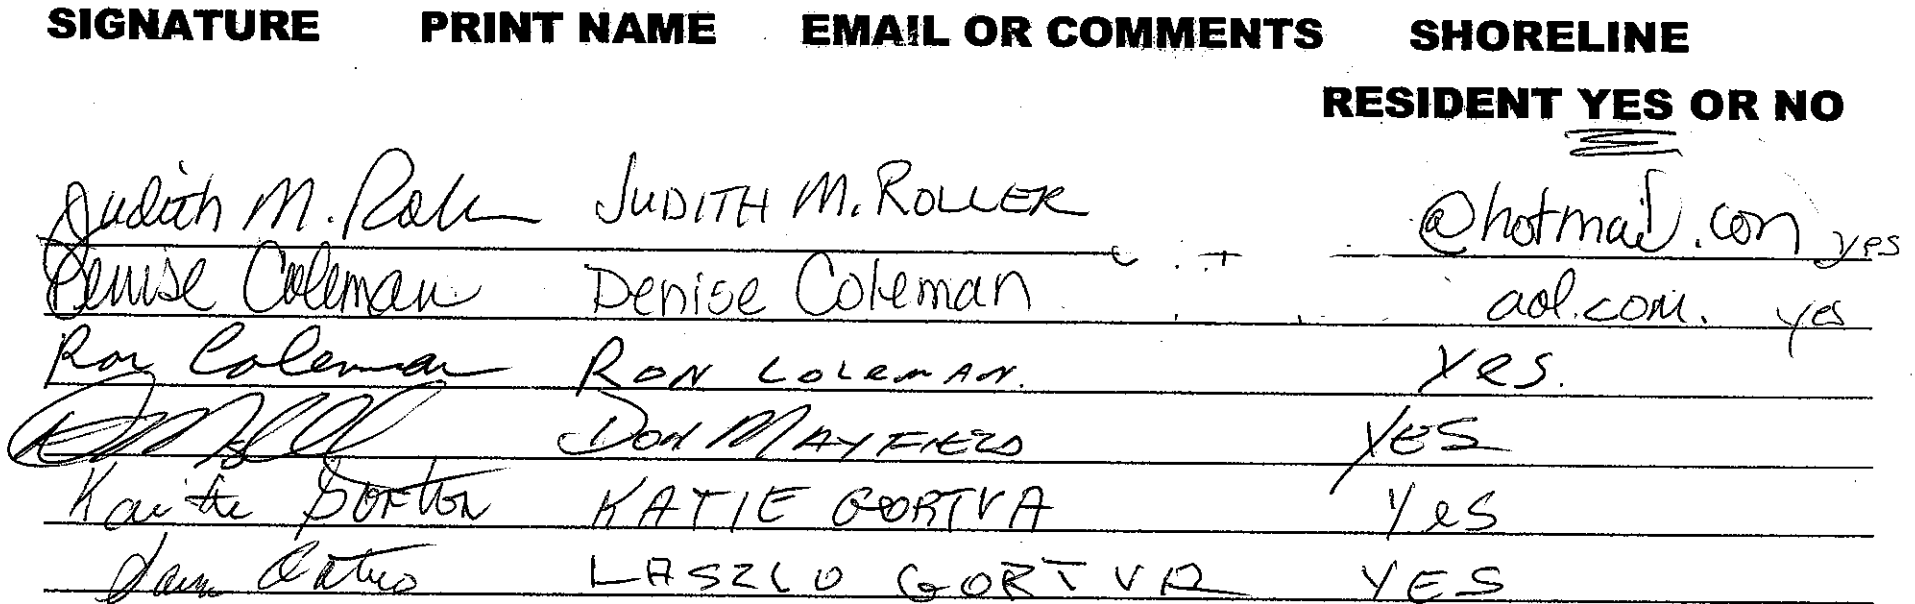 SIGNATURE PRINT NAME EMAIL OR COMMENTS SHORELINE
RESIDENT YES OR NO
Judith M. JUDITH M. ROLLER @hotmail.com yes
Denise Coleman Denise Coleman aol.com. yes
Ron Coleman RON COLEMAN. Yes.
DON MAYFIELD YES
KATIE GORTVA Yes
LASZLO GORTVA YES